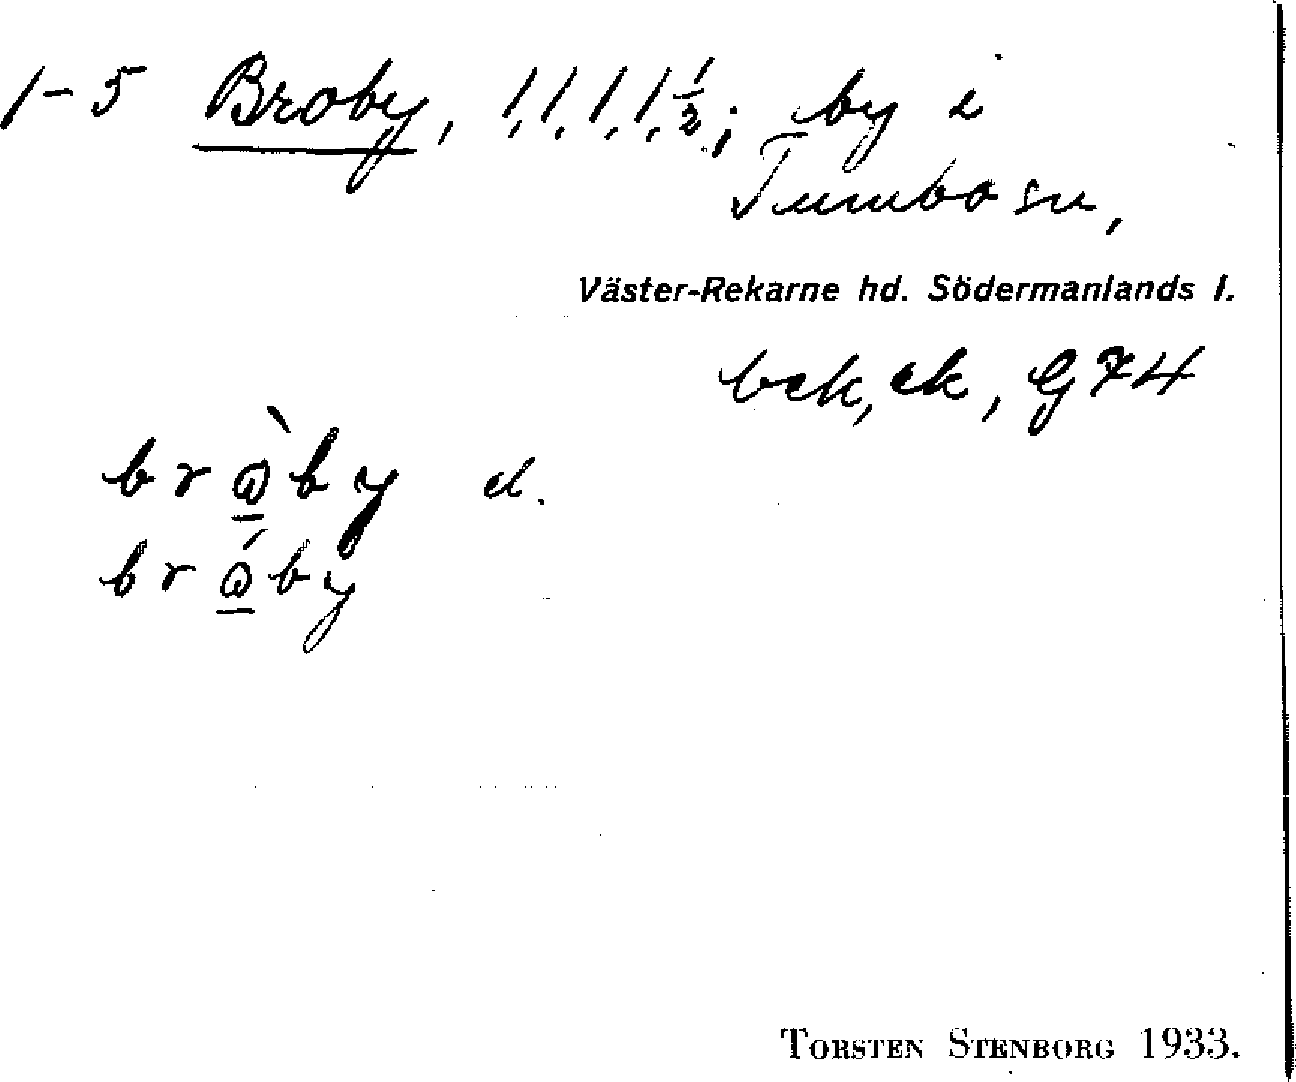 1-5 Broby, 1,1,1,1,½; by i
Tumbo sn,
Väster-Rekarne hd. Södermanlands l.
bek, ek, G74
brò̲by el.
bró̲by
TORSTEN STENBORG 1933.